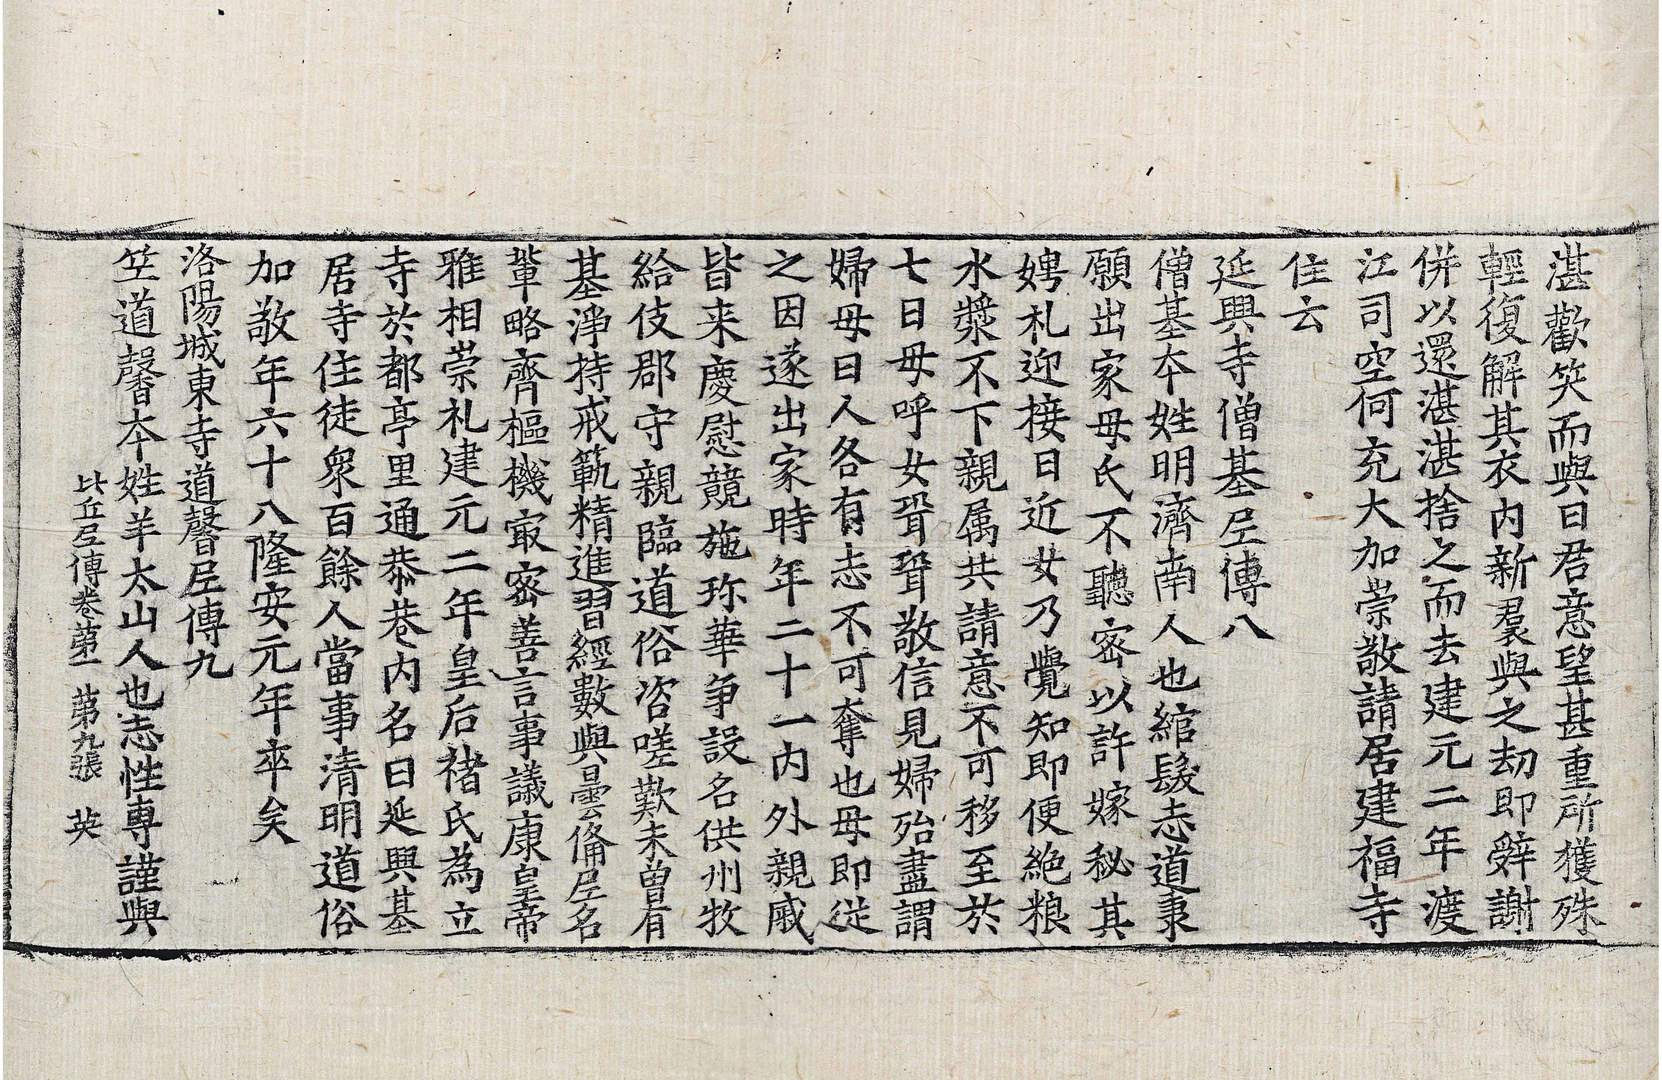 湛歡笑而與曰君意望甚重所獲殊
輕復解其衣内新裙與之劫即辤謝
併以還湛湛捨之而去建元二年渡
江司空何充大加崇敬請居建福寺
住云
延興寺僧基尼傳八
僧基本姓明濟南人也綰髮志道秉
願出家母氏不聽密以許嫁秘其
娉礼迎接日近女乃覺知即便絶粮
水漿不下親属共請意不可移至於
七日母呼女聟聟敬信見婦殆盡謂
婦母曰人各有志不可奪也母即従
之因遂出家時年二十一内外親戚
皆来慶慰競施珎華争設名供州牧
給伎郡守親臨道俗咨嗟歎未曽有
基淨持戒範精進習經數與曇俻尼名
軰略齊樞機㝡密善言事議康皇帝
雅相崇礼建元二年皇后禇氏為立
寺於都亭里通恭巷内名曰延興基
居寺住徒衆百餘人當事清明道俗
加敬年六十八隆安元年卒矣
洛陽城東寺道馨尼傳九
竺道馨本姓羊太山人也志性專謹與
比丘尼傳卷苐一 苐九張 英